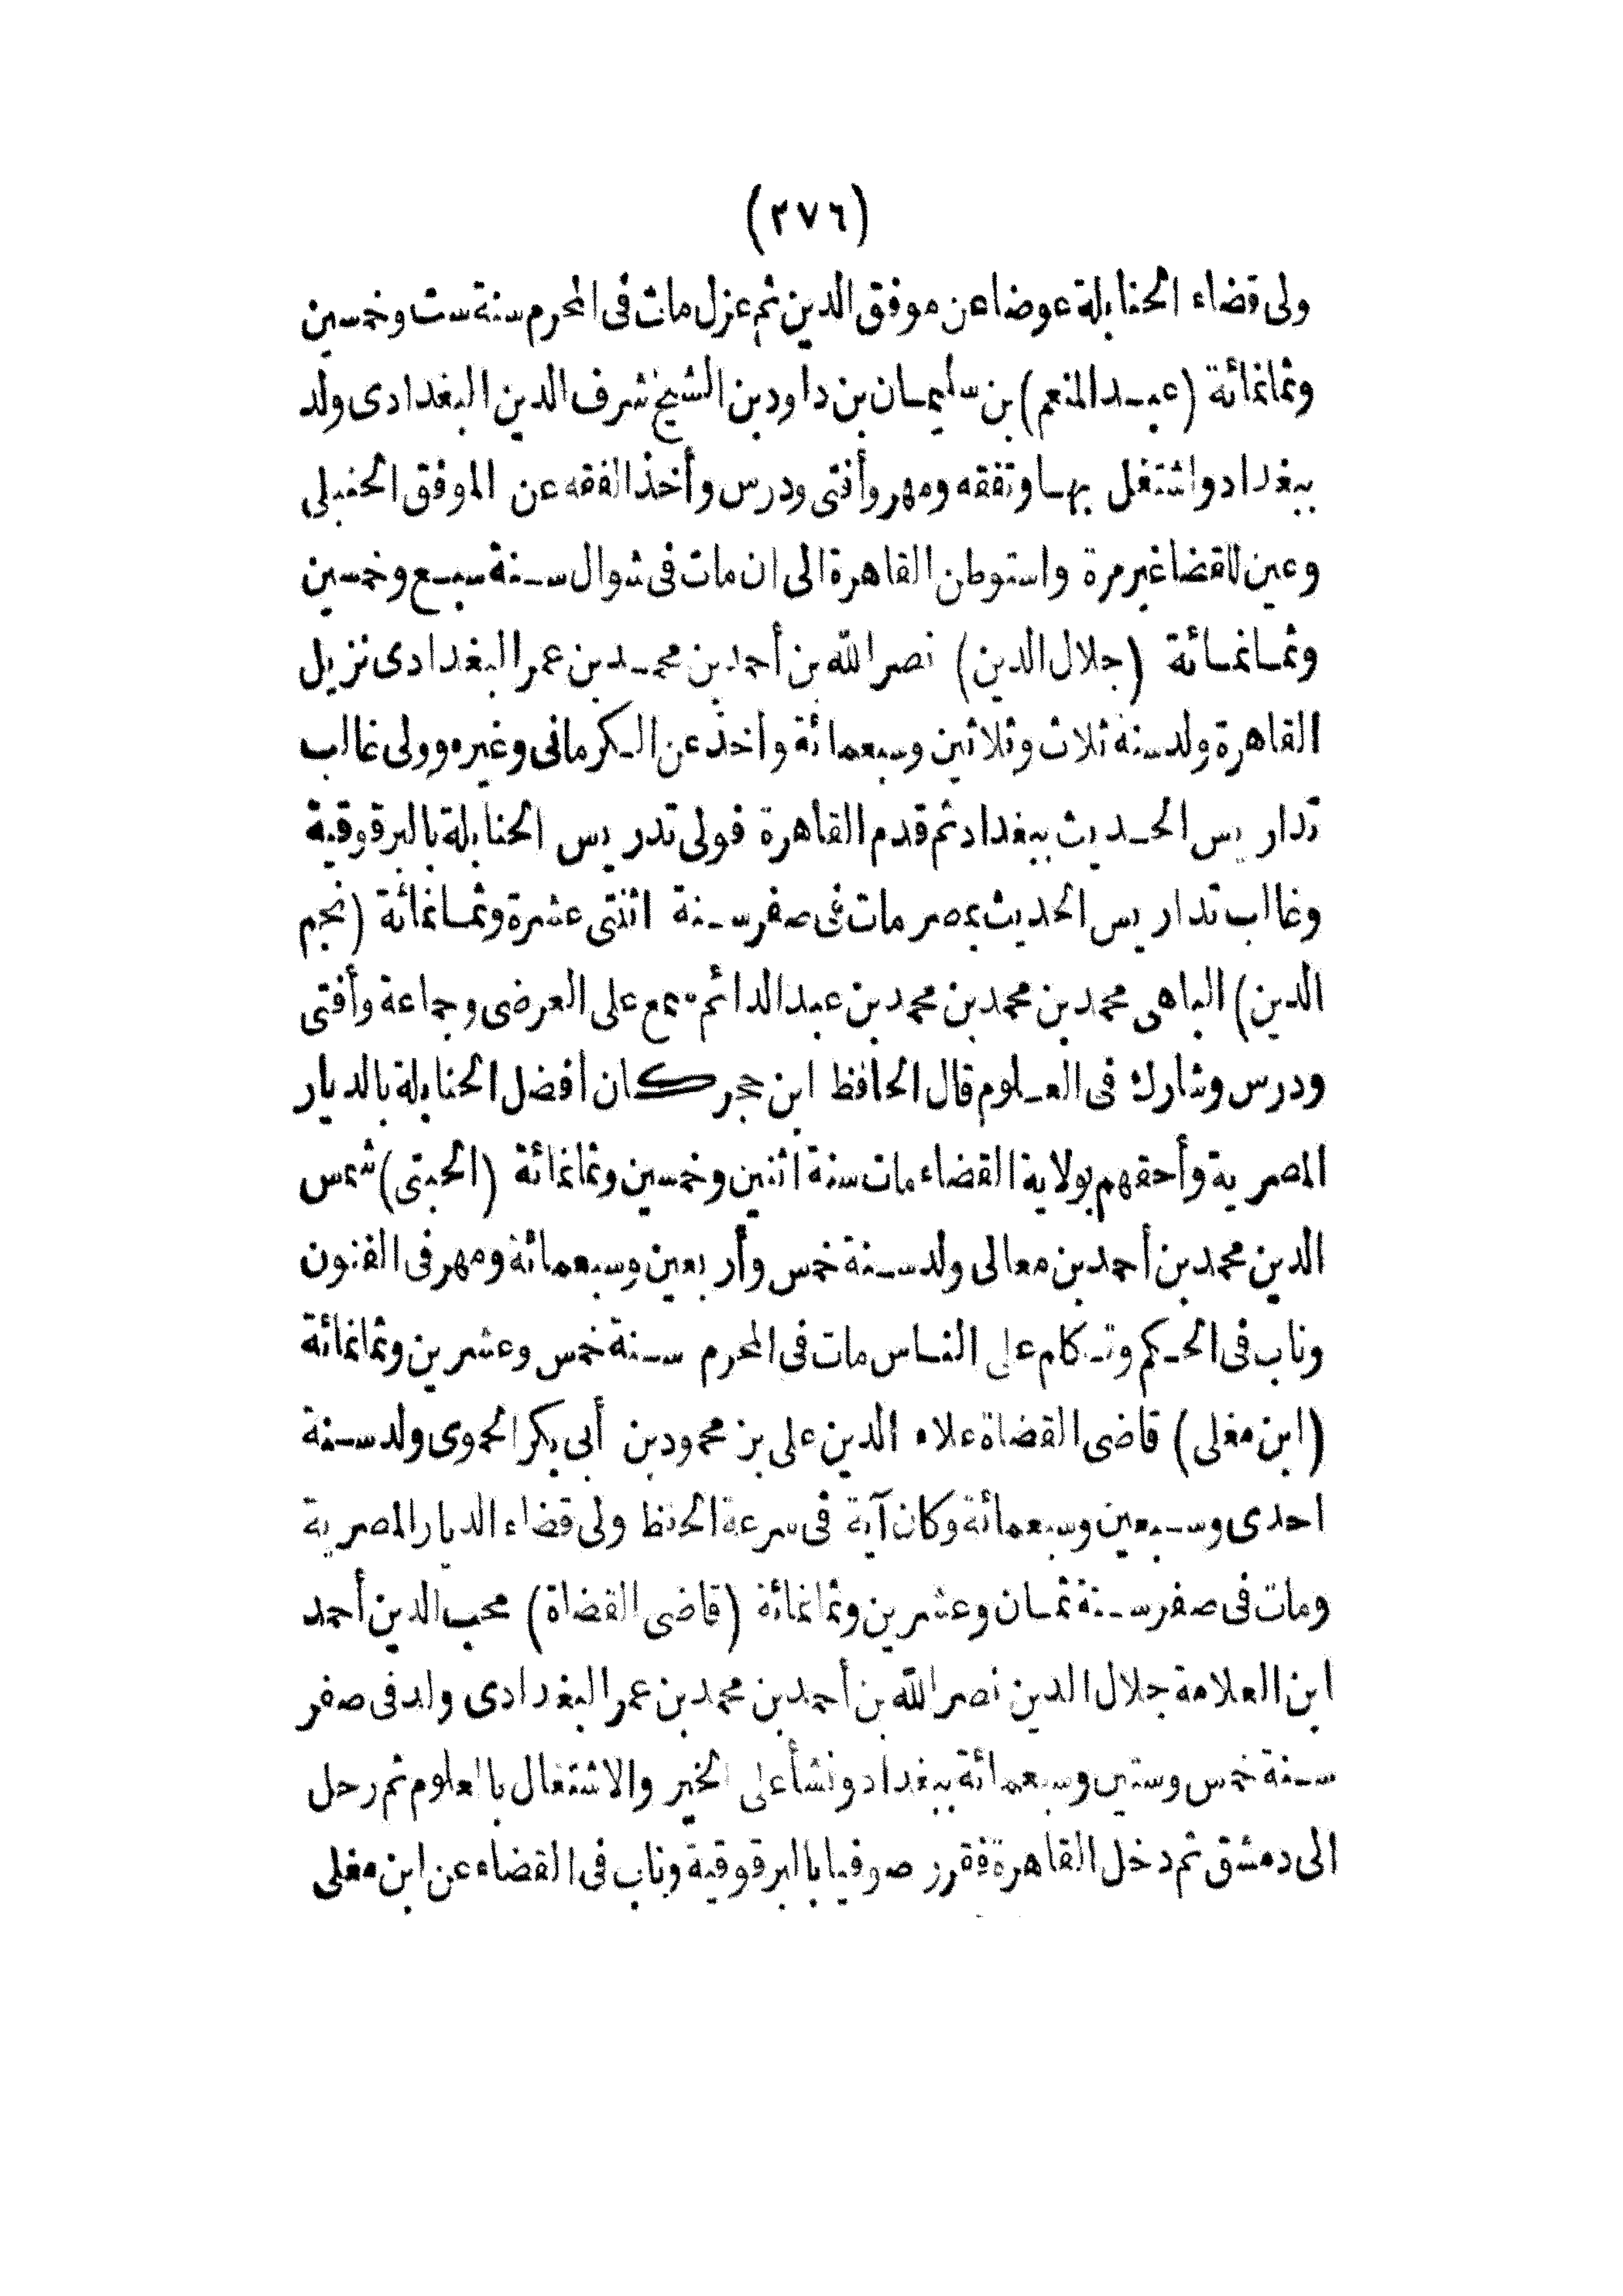 (٢٧٦)
ولى قضاء الحنابلة عوضا عن موفق الدين ثم عزل مات فى المحرم سنة ست وخمسين
وثمانمائة (عبد المنعم) بن سليمان بن داود بن الشيخ شرف الدين البغدادى ولد
ببغداد واشتغل بها وتفقه ومهر وأفتى ودرس وأخذ الفقه عن الموفق الحنبلى
وعين للقضا غير مرة واستوطن القاهرة الى ان مات فى شوال سنة سبع وخمسين
وثمانمائة (جلال الدين) نصر الله بن أحمد بن محمد بن عمر البغدادى نزيل
القاهرة ولد سنة ثلاث وثلاثين وسبعمائة وأخذ عن الكرمانى وغيره وولى غالب
تداريس الحديث ببغداد ثم قدم القاهرة فولى تدريس الحنابلة بالبرقوقية
وغالب تداريس الحديث بمصر مات فى صفر سنة اثنتى عشرة وثمانمائة (نجم
الدين) الباهى محمد بن محمد بن محمد بن عبد الدائم سمع على العرضى وجماعة وأفتى
ودرس وشارك فى العلوم قال الحافظ ابن حجر كان أفضل الحنابلة بالديار
المصرية وأحقهم بولاية القضاء مات سنة اثنين وخمسين وثمانمائة (الحبتى) شمس
الدين محمد بن أحمد بن معالى ولد سنة خمس وأربعين وسبعمائة ومهر فى الفنون
وناب فى الحكم وتكلم على الناس مات فى المحرم سنة خمس وعشرين وثمانمائة
(ابن مغلى) قاضى القضاة علاء الدين على بن محمود بن أبى بكر الحموى ولد سنة
احدى وسبعين وسبعمائة وكان آية فى سرعة الحفظ ولى قضاء الديار المصرية
ومات فى صفر سنة ثمان وعشرين وثمانمائة (قاضى القضاة) محب الدين أحمد
ابن العلامة جلال الدين نصر الله بن أحمد بن محمد بن عمر البغدادى ولد فى صفر
سنة خمس وستين وسبعمائة ببغداد ونشأ على الخير والاشتغال بالعلوم ثم رحل
الى دمشق ثم دخل القاهرة فقرر صوفيا بالبرقوقية وناب فى القضاء عن ابن مغلى